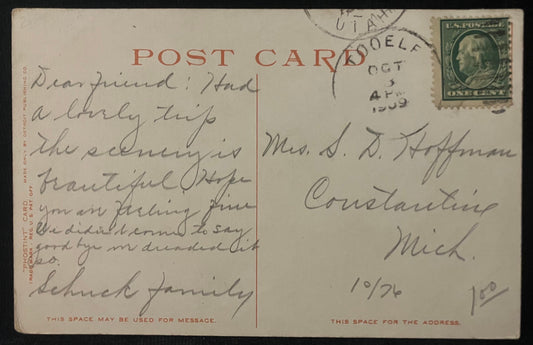 UTAH
U.S. POSTAGE
ONE CENT
TOOELE
OCT
3
4 PM
1909
POST CARD
Dear friend: Had
a lovely trip
the scenery is
beautiful Hope
you are feeling fine
We didn't come to say
good bye we dreaded it
so.
Schuck family
Mrs. S. D. Hoffman
Constantine
Mich.
10/76
1.00
"PHOSTINT" CARD. MADE ONLY BY DETROIT PUBLISHING CO.
TRADE MARK REG. U.S. PAT. OFF.
THIS SPACE MAY BE USED FOR MESSAGE.
THIS SPACE FOR THE ADDRESS.